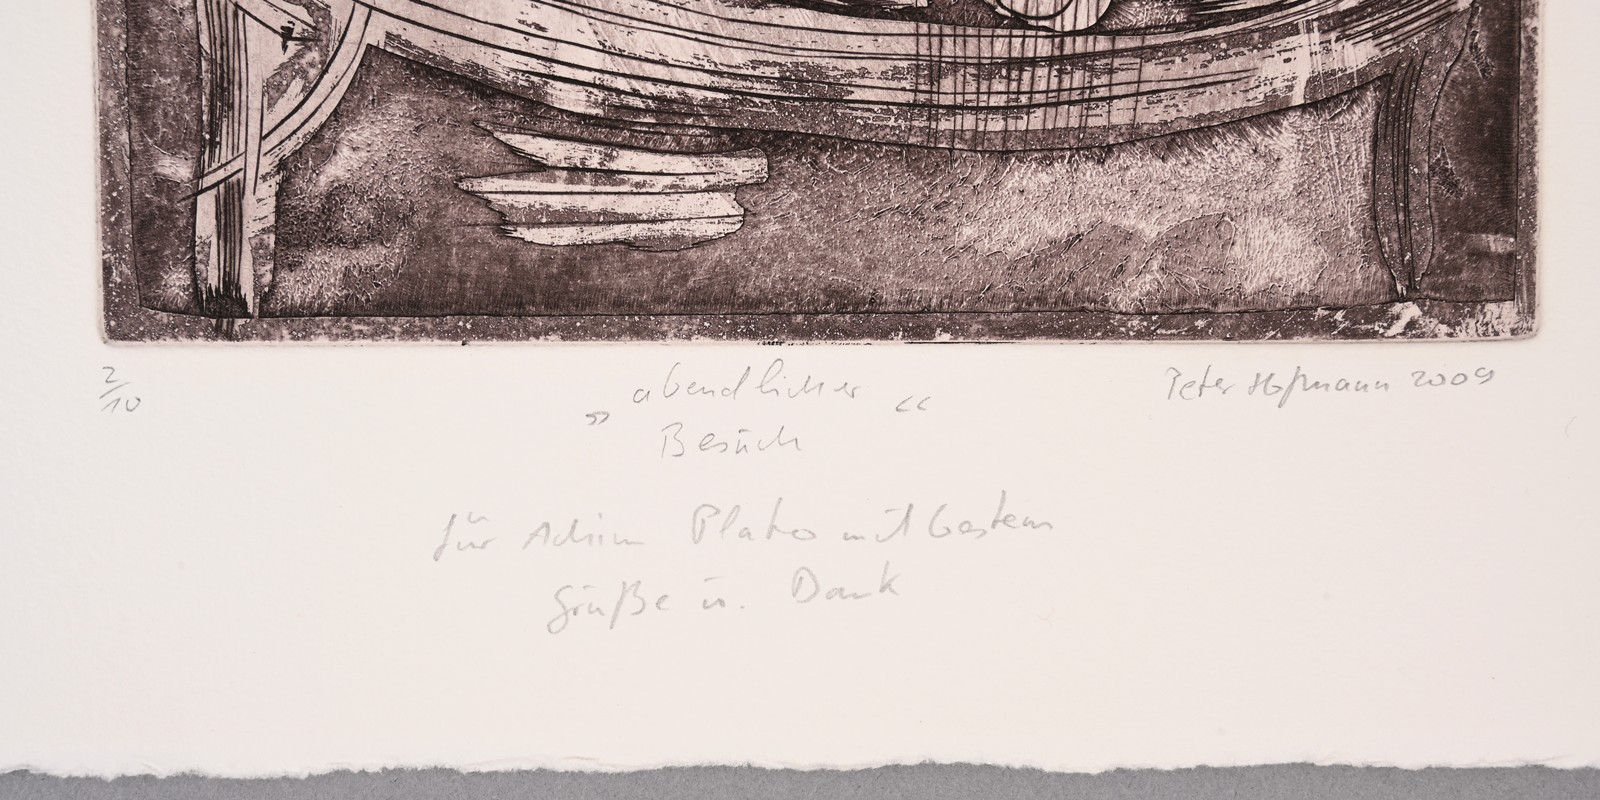 2/10
„abendlicher“
Besuch
Peter Hofmann 2009
für Achim Plato mit besten
Grüße u. Dank